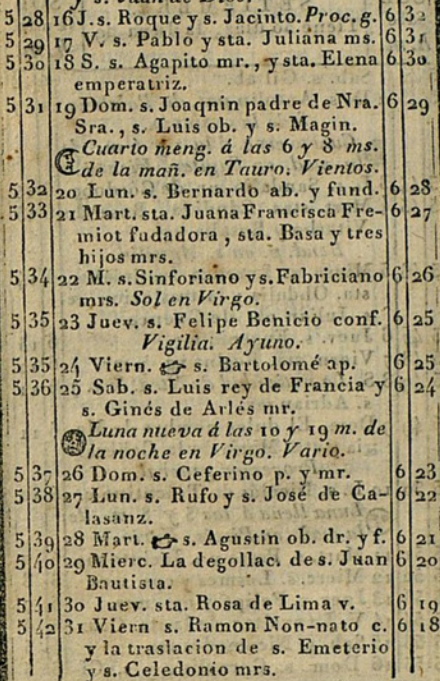 5 28 16 J. s. Roque y s. Jacinto. Proc. g. 6 32
5 29 17 V. s. Pablo y sta. Juliana ms. 6 31
5 30 18 S. s. Agapito mr., y sta. Elena 6 30
emperatriz.
5 31 19 Dom. s. Joaqnin padre de Nra. 6 29
Sra., s. Luis ob. y s. Magin.
Cuarto meng. á las 6 y 8 ms.
de la mañ. en Tauro. Vientos.
5 32 20 Lun. s. Bernardo ab. y fund. 6 28
5 33 21 Mart. sta. Juana Francisca Fre- 6 27
miot fudadora, sta. Basa y tres
hijos mrs.
5 34 22 M. s. Sinforiano y s. Fabriciano 6 26
mrs. Sol en Virgo.
5 35 23 Juev. s. Felipe Benicio conf. 6 25
Vigilia. Ayuno.
5 35 24 Viern. ☞ s. Bartolomé ap. 6 25
5 36 25 Sab. s. Luis rey de Francia y 6 24
s. Ginés de Arlés mr.
Luna nueva á las 10 y 19 m. de
la noche en Virgo. Vario.
5 37 26 Dom. s. Ceferino p. y mr. 6 23
5 38 27 Lun. s. Rufo y s. José de Ca- 6 22
lasanz.
5 39 28 Mart. ☞ s. Agustin ob. dr. y f. 6 21
5 40 29 Mierc. La degollac. de s. Juan 6 20
Bautista.
5 41 30 Juev. sta. Rosa de Lima v. 6 19
5 42 31 Viern s. Ramon Non-nato c. 6 18
y la traslacion de s. Emeterio
y s. Celedonio mrs.